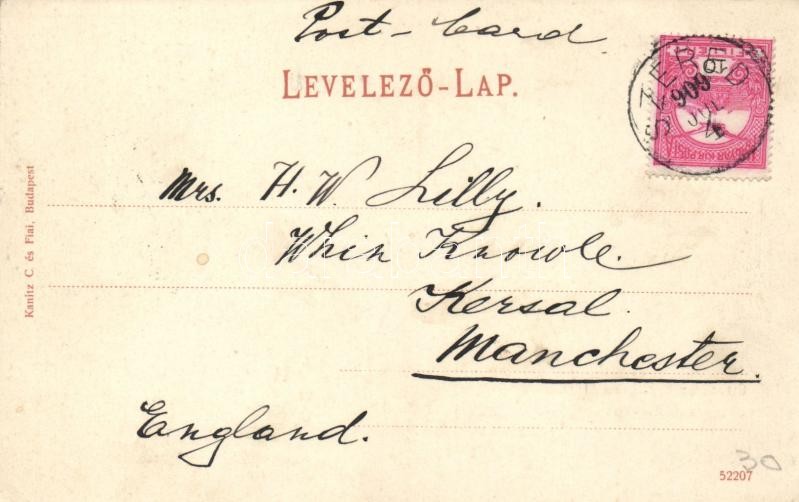 Post-Card
LEVELEZŐ-LAP.
SZERED
909 JUL 4
10
Mrs. H. W. Lilly.
Whin Knowle.
Kersal.
Manchester.
England.
Kanitz C. és Fiai, Budapest
52207
30